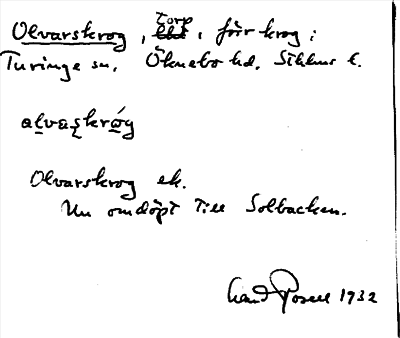 Olvarskrog, torp, förr krog i
Turinge sn, Öknebo hd, Sthlms l.
Olvarskrog ek.
Nu omdöpt till Solbacken.
1932